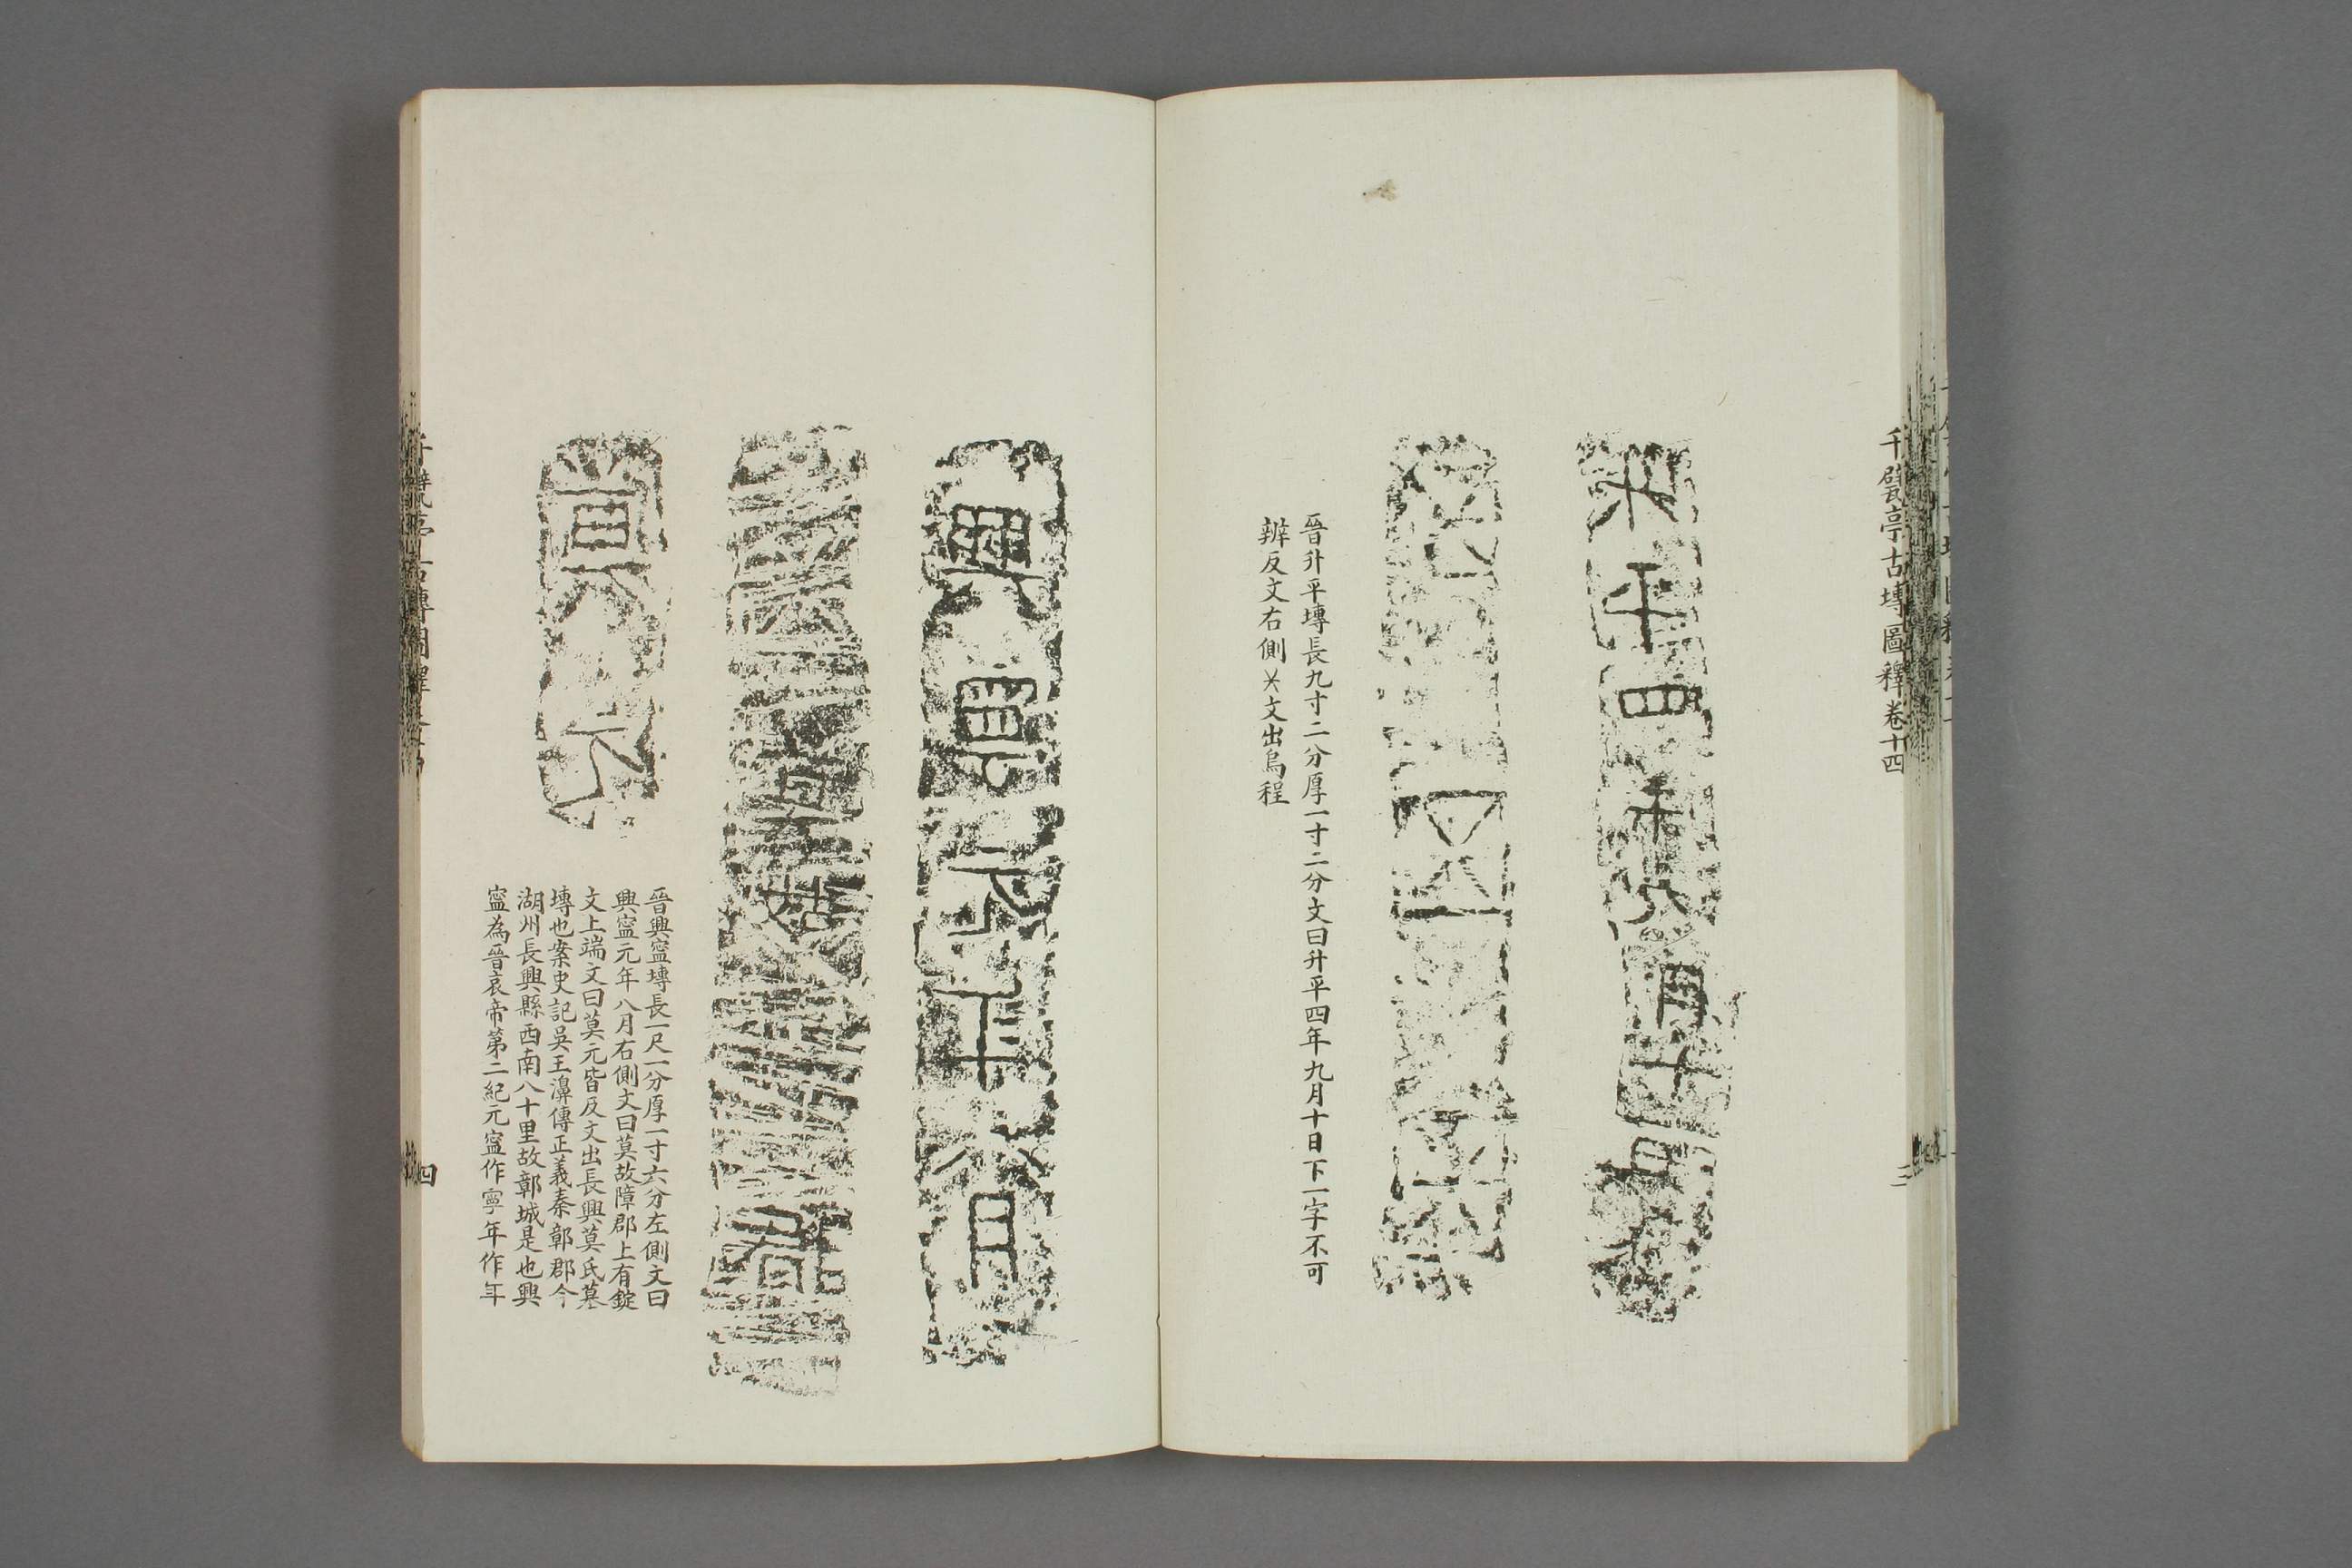 千甓亭古塼圖釋卷十四
升平四年九月十日
晉升平塼長九寸二分厚一寸二分文曰升平四年九月十日下一字不可
辨反文右側㐅文出烏程
三
興寍元年八月
莫故障郡
莫元
晉興寍塼長一尺一分厚一寸六分左側文曰
興寍元年八月右側文曰莫故障郡上有錠
文上端文曰莫元皆反文出長興莫氏墓
塼也案史記吳王濞傳正義秦鄣郡今
湖州長興縣西南八十里故鄣城是也興
寍為晉哀帝第二紀元寍作寧年作年
四